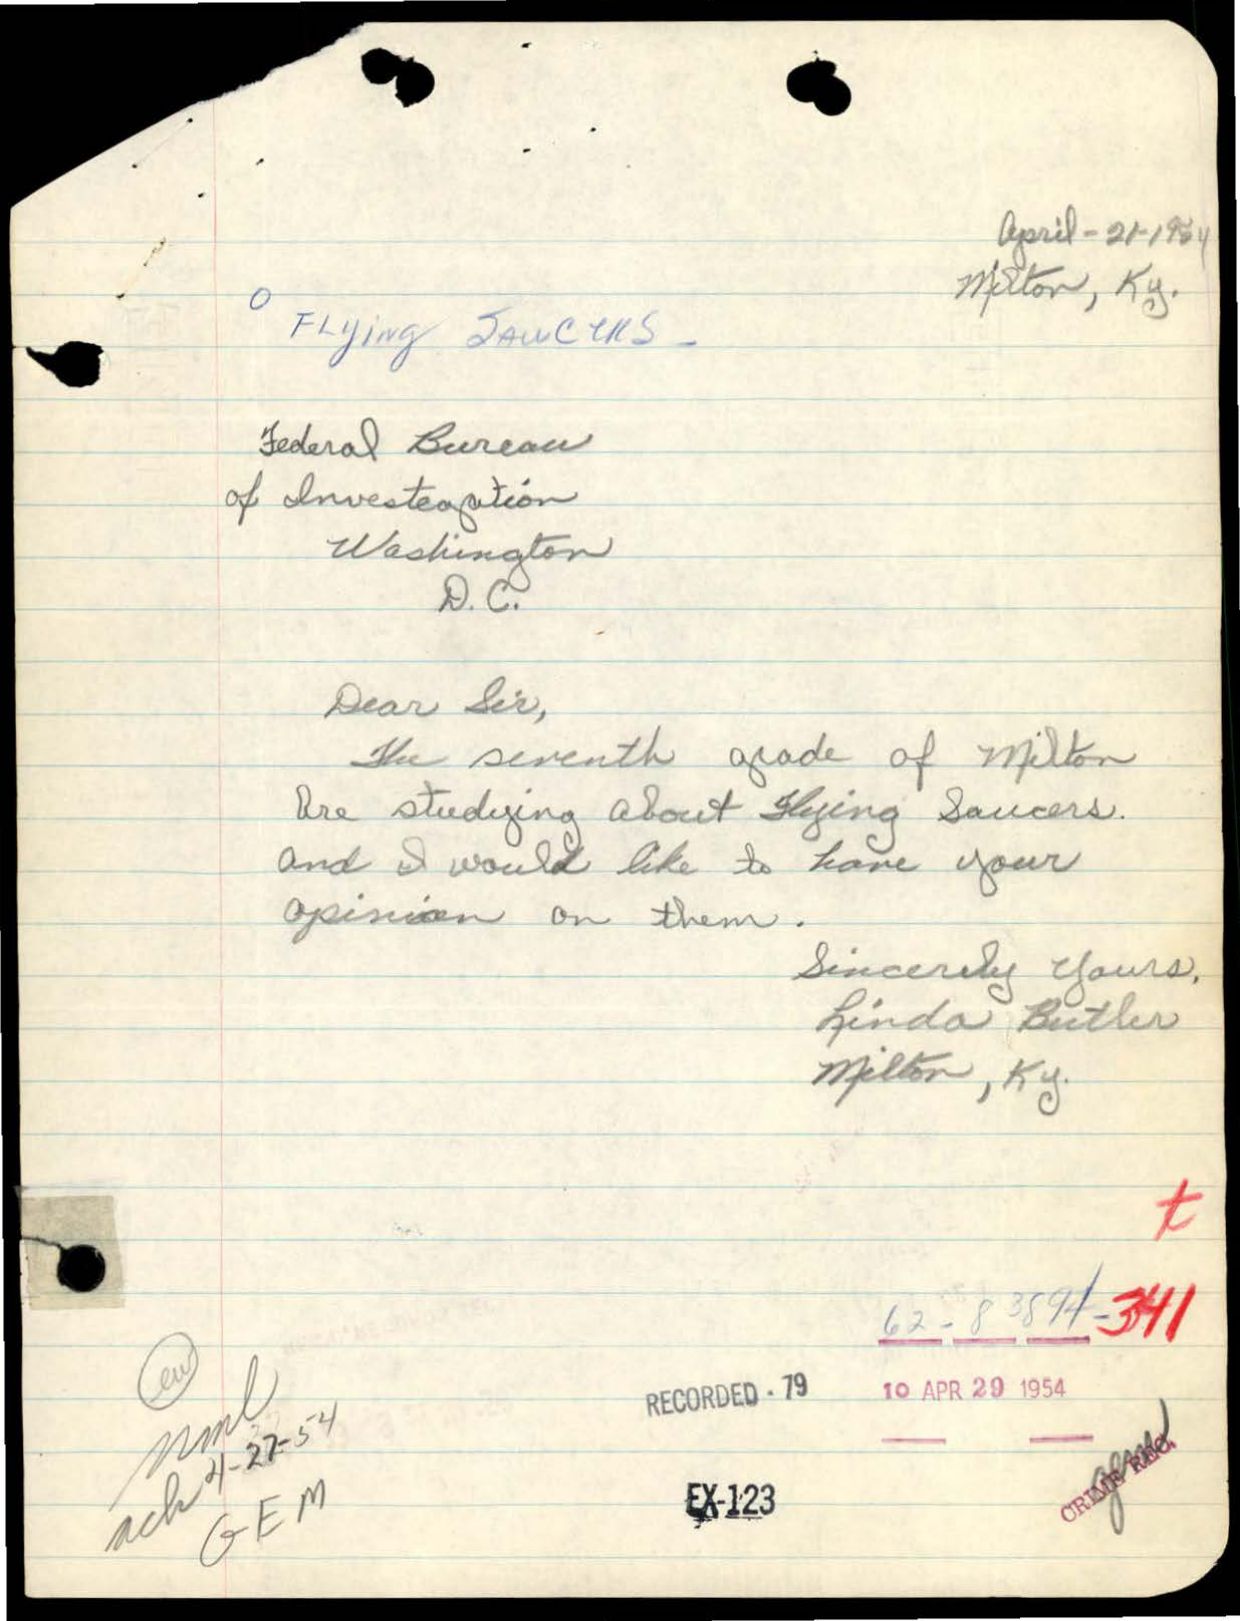 April-21-1954
Milton, Ky.
Flying Saucers -
Federal Bureau
of Investeagation
Washington
D.C.
Dear Sir,
The seventh grade of Milton
are studying about Flying Saucers.
and I would like to have your
opinion on them.
Sincerely Yours,
Linda Butler
Milton, Ky.
t
62-83894-341
RECORDED - 79
10 APR 29 1954
ew
nml
ack 4-27-54
GEM
EX-123
CRIME REC.